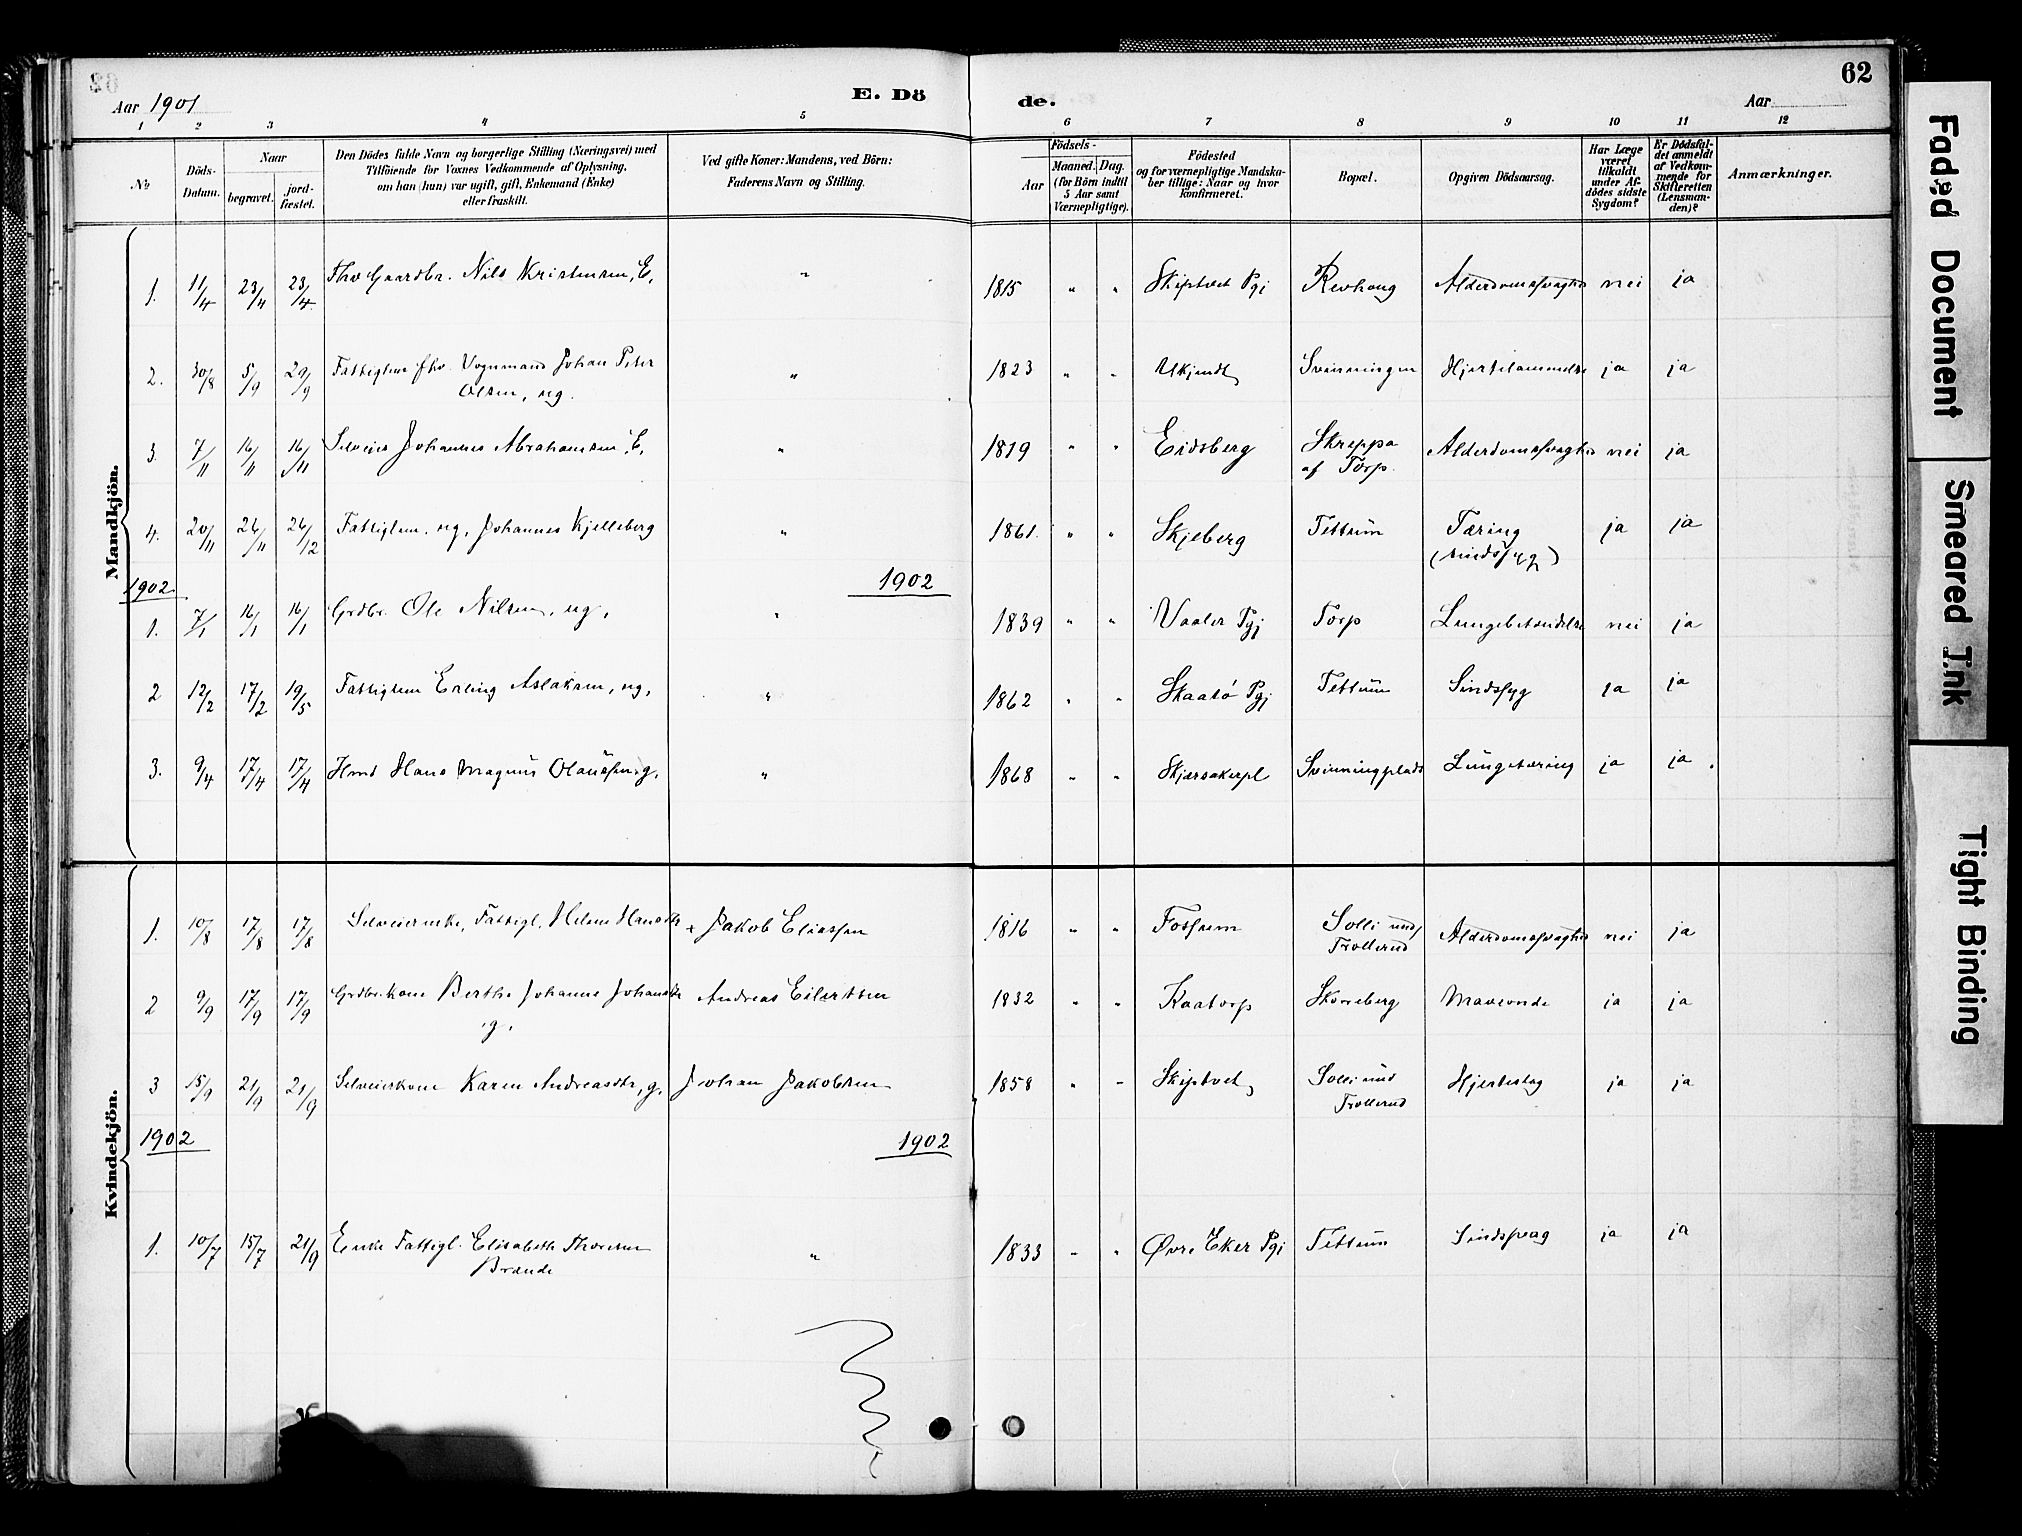 62
Aar 1901
E. Dö
de.
Aar
1 2 3 4 5 6 7 8 9 10 11 12
No
Döds-Datum.
Naar
begravet.
jord-fæstet.
Den Dödes fulde Navn og borgerlige Stilling (Næringsvei) med
Tilföiende for Voxnes Vedkommende af Oplysning,
om han (hun) var ugift, gift, Enkemand (Enke)
eller fraskilt.
Ved gifte Koner: Mandens, ved Börn:
Faderens Navn og Stilling.
Födsels-
Aar
Maaned. Dag.
(for Börn indtil
5 Aar samt
Værnepligtige).
Födested
og for værnepligtige Mandska-
ber tillige: Naar og hvor
konfirmeret.
Bopæl.
Opgiven Dödsaarsag.
Har Læge
været
tilkaldt
under Af-
dödes sidste
Sygdom?
Er Dödsfal-
det anmeldt
af Vedkom-
mende for
Skifteretten
(Lensman-
den)?
Anmærkninger.
Mandkjön.
1. 11/4 23/4 23/4 Fhv Gaardbr. Nils Kristensen, E. " 1815 " " Skiptvet Pgj Revhaug Alderdomssvaghed nei ja
2. 30/8 5/9 29/9 Fattiglem fhv. Vognmand Johan Peter " 1823 " " Ukjendt Svinningen Hjertelammelse ja ja
Olsen, ug.
3. 7/11 16/11 16/11 Selveier Johannes Abrahamsen, E. " 1819 " " Eidsberg Skreppa Alderdomssvaghed nei ja
af Torp.
4. 20/11 26/11 26/12 Fattiglem, ug, Johannes Kjelleberg " 1861. " " Skjeberg Tettum Tæring ja ja
(sindssyg)
1902 1902
1. 7/1 16/1 16/1 Grdbr. Ole Nilsen, ug, " 1839 " " Vaaler Pgj Torp Lungebetændelse nei ja
2 12/2 17/2 19/5 Fattiglem Erling Aslaksen, ug, " 1862 " " Skaatö Pgj Tettum Sindssyg ja ja
3. 9/4 17/4 17/4 Hmd Hans Magnus Olaussen, g, " 1868 " " Skjærsakerpl Svinningplads Lungetæring ja ja
Kvindekjön.
1. 10/8 17/8 17/8 Selveierenke, Fattigl. Helene Hansdtr + Jakob Eliassen 1816 " " Fossum Solli und/ Alderdomssvaghed nei ja
Trollerud
2 9/9 17/9 17/9 Grdbr.kone Berthe Johanne Johansdtr Andreas Eilertsen 1832 " " Kaatorp Skorreberg Maveonde ja ja
g,
3 15/9 21/9 21/9 Selveierkone Karen Andreasdtr, g, Johan Jakobsen 1858 " " Skiptvet Solli und Hjerteslag ja ja
Trollerud
1902 1902
1. 10/7 15/7 21/9 Enke Fattigl. Elisabeth Thoresen " 1833 " " Øvre Eker Pgj Tettum Sindssvag ja ja
Brænde
Faded Document
Smeared Ink
Tight Binding